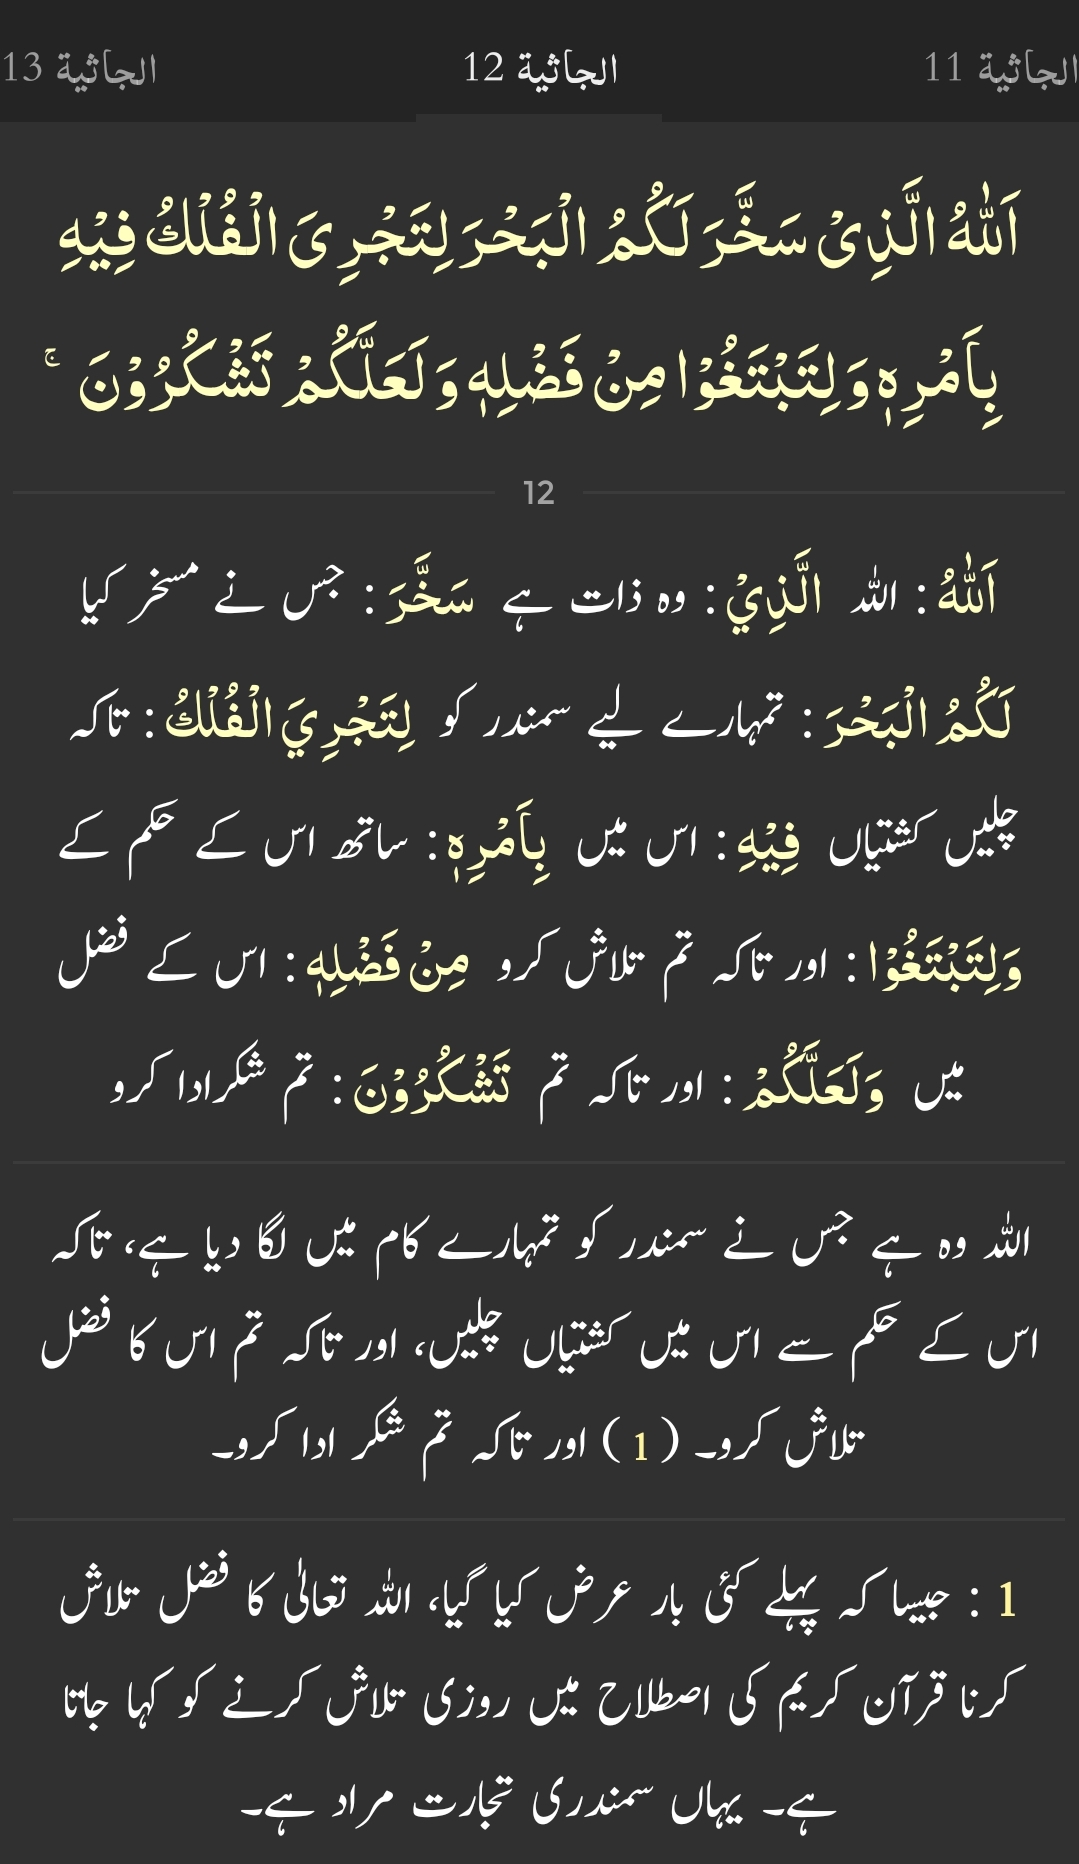 الجاثية 11 الجاثية 12 الجاثية 13
اَللّٰهُ الَّذِىْ سَخَّرَ لَكُمُ الْبَحْرَ لِتَجْرِىَ الْفُلْكُ فِيْهِ
بِاَمْرِهٖ وَلِتَبْتَغُوْا مِنْ فَضْلِهٖ وَلَعَلَّكُمْ تَشْكُرُوْنَ ۚ
12
اَللّٰهُ : اللہ الَّذِيْ : وہ ذات ہے سَخَّرَ : جس نے مسخر کیا
لَكُمُ الْبَحْرَ : تمہارے لیے سمندر کو لِتَجْرِيَ الْفُلْكُ : تاکہ
چلیں کشتیاں فِيْهِ : اس میں بِاَمْرِهٖ : ساتھ اس کے حکم کے
وَلِتَبْتَغُوْا : اور تاکہ تم تلاش کرو مِنْ فَضْلِهٖ : اس کے فضل
میں وَلَعَلَّكُمْ : اور تاکہ تم تَشْكُرُوْنَ : تم شکرادا کرو
اللہ وہ ہے جس نے سمندر کو تمہارے کام میں لگا دیا ہے، تاکہ
اس کے حکم سے اس میں کشتیاں چلیں، اور تاکہ تم اس کا فضل
تلاش کرو۔ (1) اور تاکہ تم شکر ادا کرو۔
1 : جیسا کہ پہلے کئی بار عرض کیا گیا، اللہ تعالیٰ کا فضل تلاش
کرنا قرآن کریم کی اصطلاح میں روزی تلاش کرنے کو کہا جاتا
ہے۔ یہاں سمندری تجارت مراد ہے۔